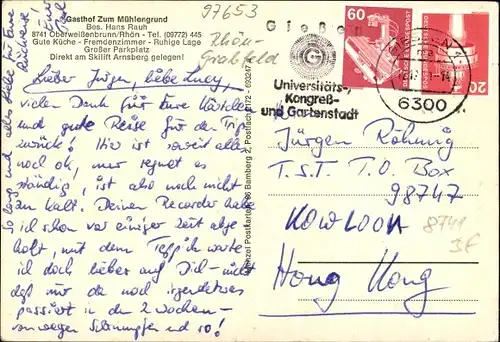 Gasthof Zum Mühlengrund
Bes. Hans Rauh
8741 Oberweißenbrunn/Rhön - Tel. (09772) 445
Gute Küche - Fremdenzimmer - Ruhige Lage
Großer Parkplatz
Direkt am Skilift Arnsberg gelegen!
97653
Rhön-
Grabfeld
Lieber Jürgen, liebe Lucy,
vielen Dank für Eure Kärtchen
und gute Reise für den Trip
zurück! Hier ist soweit alles
noch ok, nur regnet es
ständig, ist also noch nicht
zu kalt. Deinen Recorder habe
ich schon vor einiger Zeit abge
holt, mit dem Teppich warte
ich doch lieber auf Dich - nicht
daß mir da noch irgendetwas
passiert in den 2 Wochen -
von wegen Schrumpfen und so!
So long und alles Liebe für Eure
Rückreise!
Eure
Menzel Postkarten, 86 Bamberg 2, Postfach 1172 -
Gießen
Universitäts-,
Kongreß-
und Gartenstadt
60
DEUTSCHE BUNDESPOST
20
6300
Jürgen Röhnig
T.S.T. P.O. Box
98747
KOWLOON
Hong Kong
8741
3€